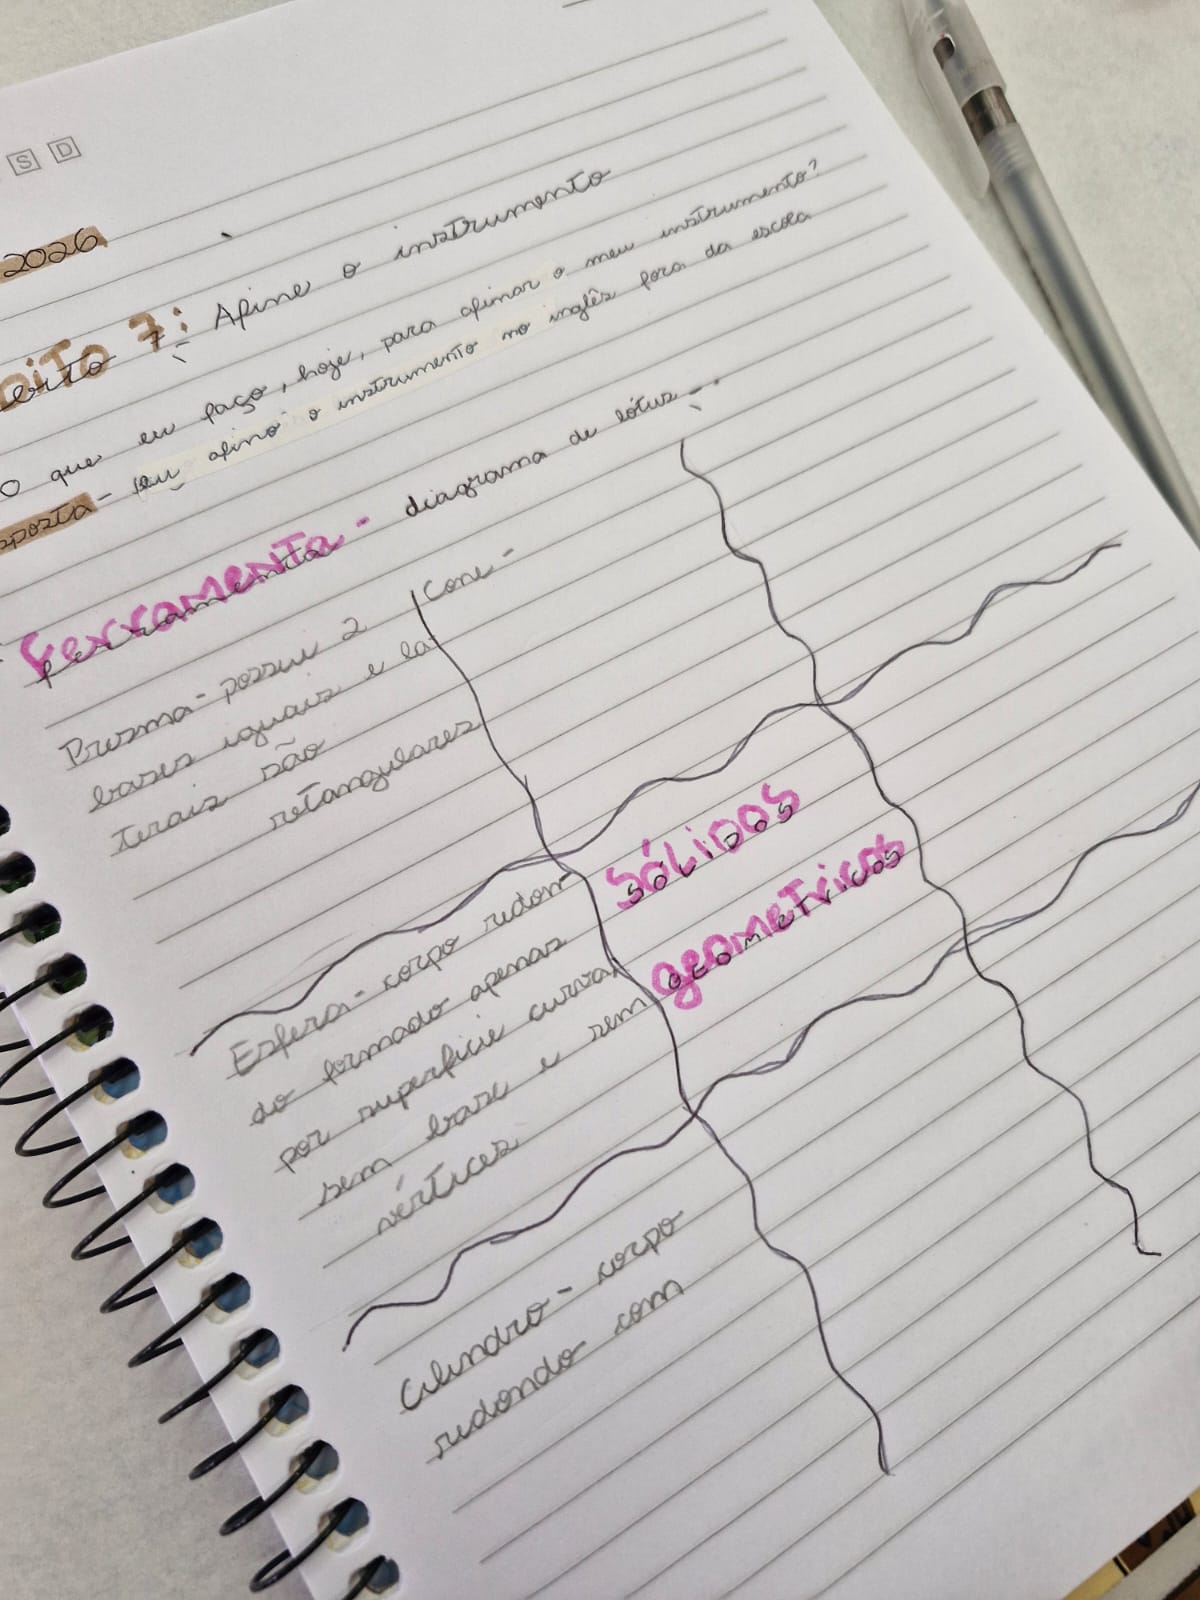 S D
2026
Hábito 7: Afine o instrumento
O que eu faço, hoje, para afinar o meu instrumento?
Resposta - eu afino o instrumento no inglês fora da escola
Ferramenta - diagrama de lótus -
Prisma - possui 2
bases iguais e la-
terais são
retangulares
Cone -
SÓLIDOS
GEOMETRICOS
Esfera - corpo redon-
do formado apenas
por superfície curva,
sem base e sem
vértices
Cilindro - corpo
redondo com